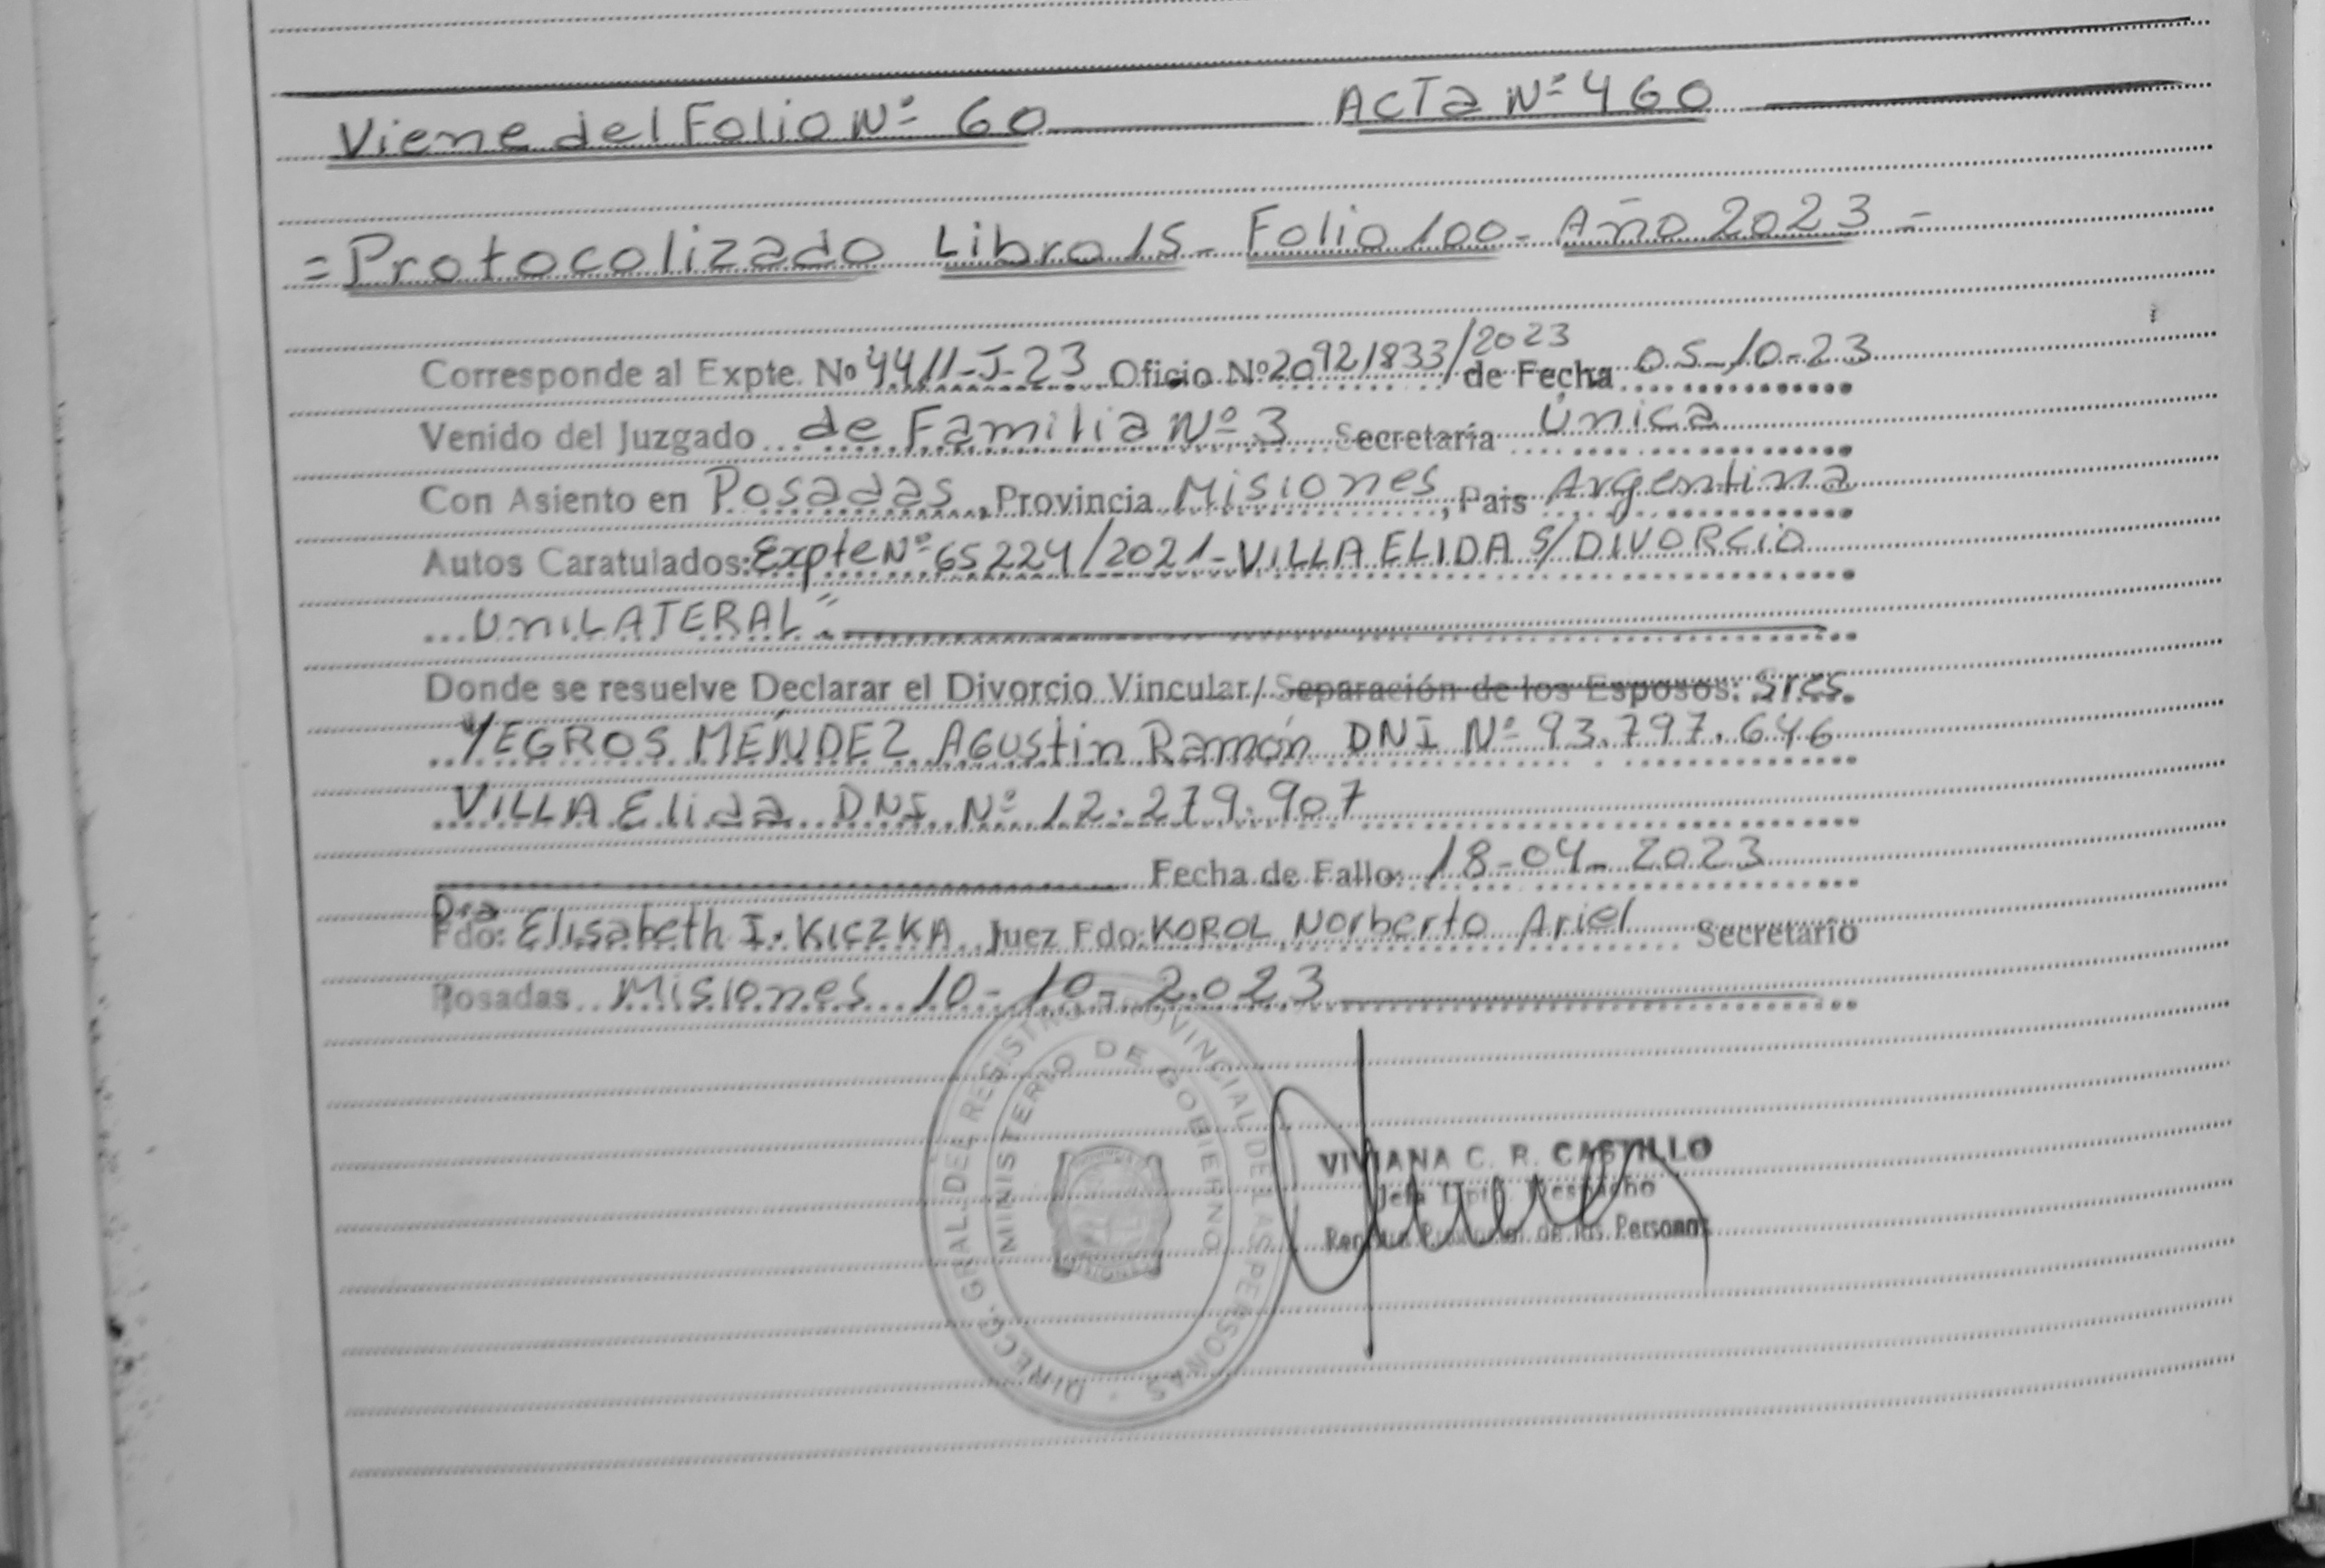 Viene del Folio Nº 60 Acta Nº 460
= Protocolizado Libro 15 - Folio 100 - Año 2023 -
Corresponde al Expte. Nº 4411-J-23 Oficio Nº 20921833/2023 de Fecha 05-10-23
Venido del Juzgado de Familia Nº 3 Secretaría Única
Con Asiento en Posadas, Provincia Misiones, Pais Argentina
Autos Caratulados: Expte Nº 65224/2021 - VILLA ELIDA S/ DIVORCIO
UNILATERAL".
Donde se resuelve Declarar el Divorcio Vincular/ Separación de los Esposos: Sres.
"YEGROS MÉNDEZ Agustin Ramón DNI Nº 93.797.646
VILLA Elida DNI Nº 12.279.907
Fecha de Fallo: 18-04-2023
Dra
Fdo: Elisabeth I. KICZKA Juez Fdo: KOROL Norberto Ariel Secretario
Posadas Misiones 10-10-2023
DIRECC. GRAL. DEL REGISTRO PROVINCIAL DE LAS PERSONAS
MINISTERIO DE GOBIERNO
VIVIANA C. R. CASTILLO
Jefa Dpto. Despacho
Registro Provincial de las Personas